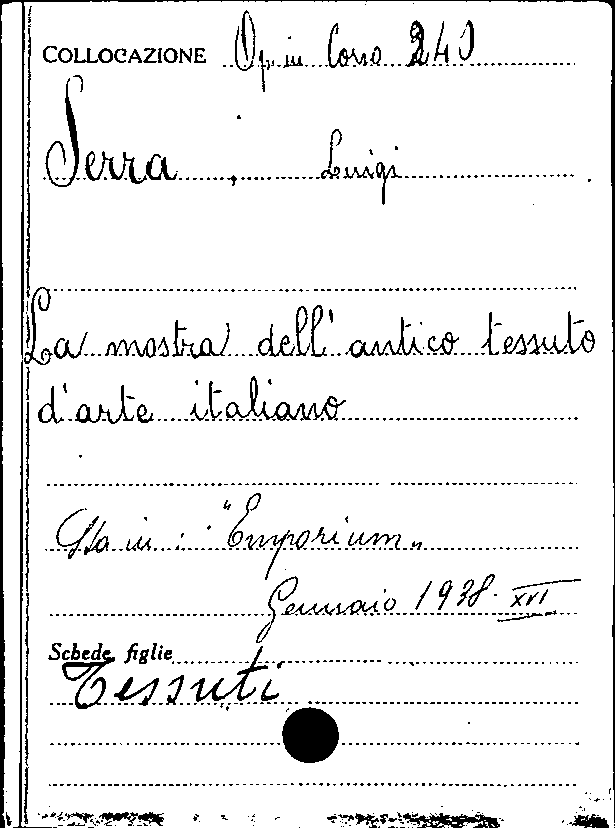 COLLOCAZIONE Op. in Corso 240
Serra, Luigi
La mostra dell'antico tessuto
d'arte italiano
Sta in: "Emporium„
Gennaio 1938-XVI
Schede figlie
Tessuti